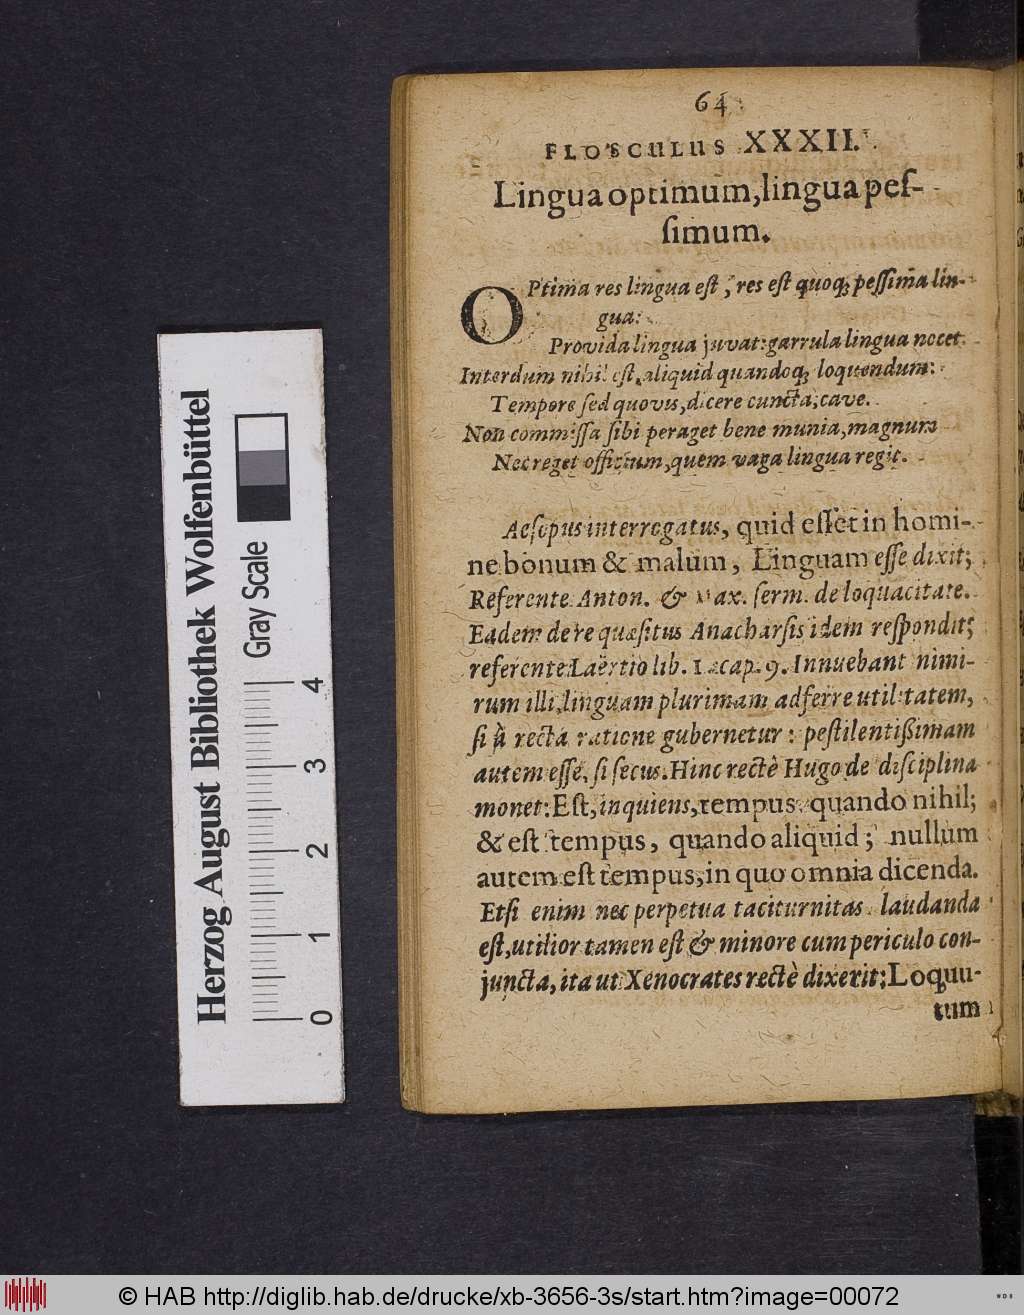 64
FLOSCULUS XXXII.
Lingua optimum, lingua pes-
simum.
OPtima res lingua est, res est quoq; pessima lin-
gua:
Provida lingua juvat: garrula lingua nocet.
Interdum nihil est, aliquid quandoq; loquendum:
Tempore sed quovis, dicere cuncta, cave.
Non commissa sibi peraget bene munia, magnum
Nec reget officium, quem vaga lingua regit.
Aesopus interrogatus, quid esset in homi-
ne bonum & malum, Linguam esse dixit;
Referente Anton. & Max. serm. de loquacitate.
Eadem de re quæsitus Anacharsis idem respondit;
referente Laërtio lib. 1. cap. 9. Innuebant nimi-
rum illi, linguam plurimam adferre utilitatem,
si à recta ratione gubernetur: pestilentißimam
autem esse, si secus. Hinc rectè Hugo de disciplina
monet: Est, inquiens, tempus, quando nihil;
& est tempus, quando aliquid; nullum
autem est tempus, in quo omnia dicenda.
Etsi enim nec perpetua taciturnitas laudanda
est, utilior tamen est & minore cum periculo con-
juncta, ita ut Xenocrates rectè dixerit; Loquu-
tum
Herzog August Bibliothek Wolfenbüttel
Gray Scale
0 1 2 3 4
© HAB http://diglib.hab.de/drucke/xb-3656-3s/start.htm?image=00072